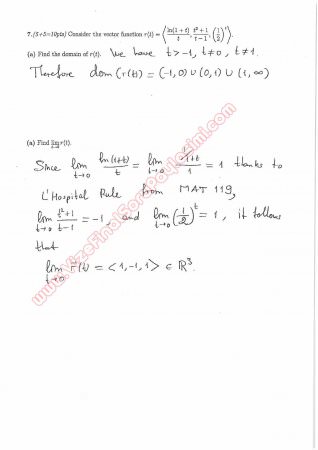 7. [5+5=10pts] Consider the vector function r(t) = ⟨ ln(1+t)/t, (t²+1)/(t−1), (1/2)^t ⟩.
(a) Find the domain of r(t). We have t > -1, t ≠ 0, t ≠ 1.
Therefore dom(r(t)) = (-1,0) ∪ (0,1) ∪ (1,∞)
(a) Find lim t→0 r(t).
Since lim t→0 ln(1+t)/t = lim t→0 (1/(1+t))/1 = 1 thanks to
L'Hospital Rule from MAT 119,
lim t→0 (t²+1)/(t-1) = -1, and lim t→0 (1/2)^t = 1, it follows
that
lim t→0 r(t) = <1,-1,1> ∈ ℝ³.
www.VizeFinalSoruPaylasimi.com